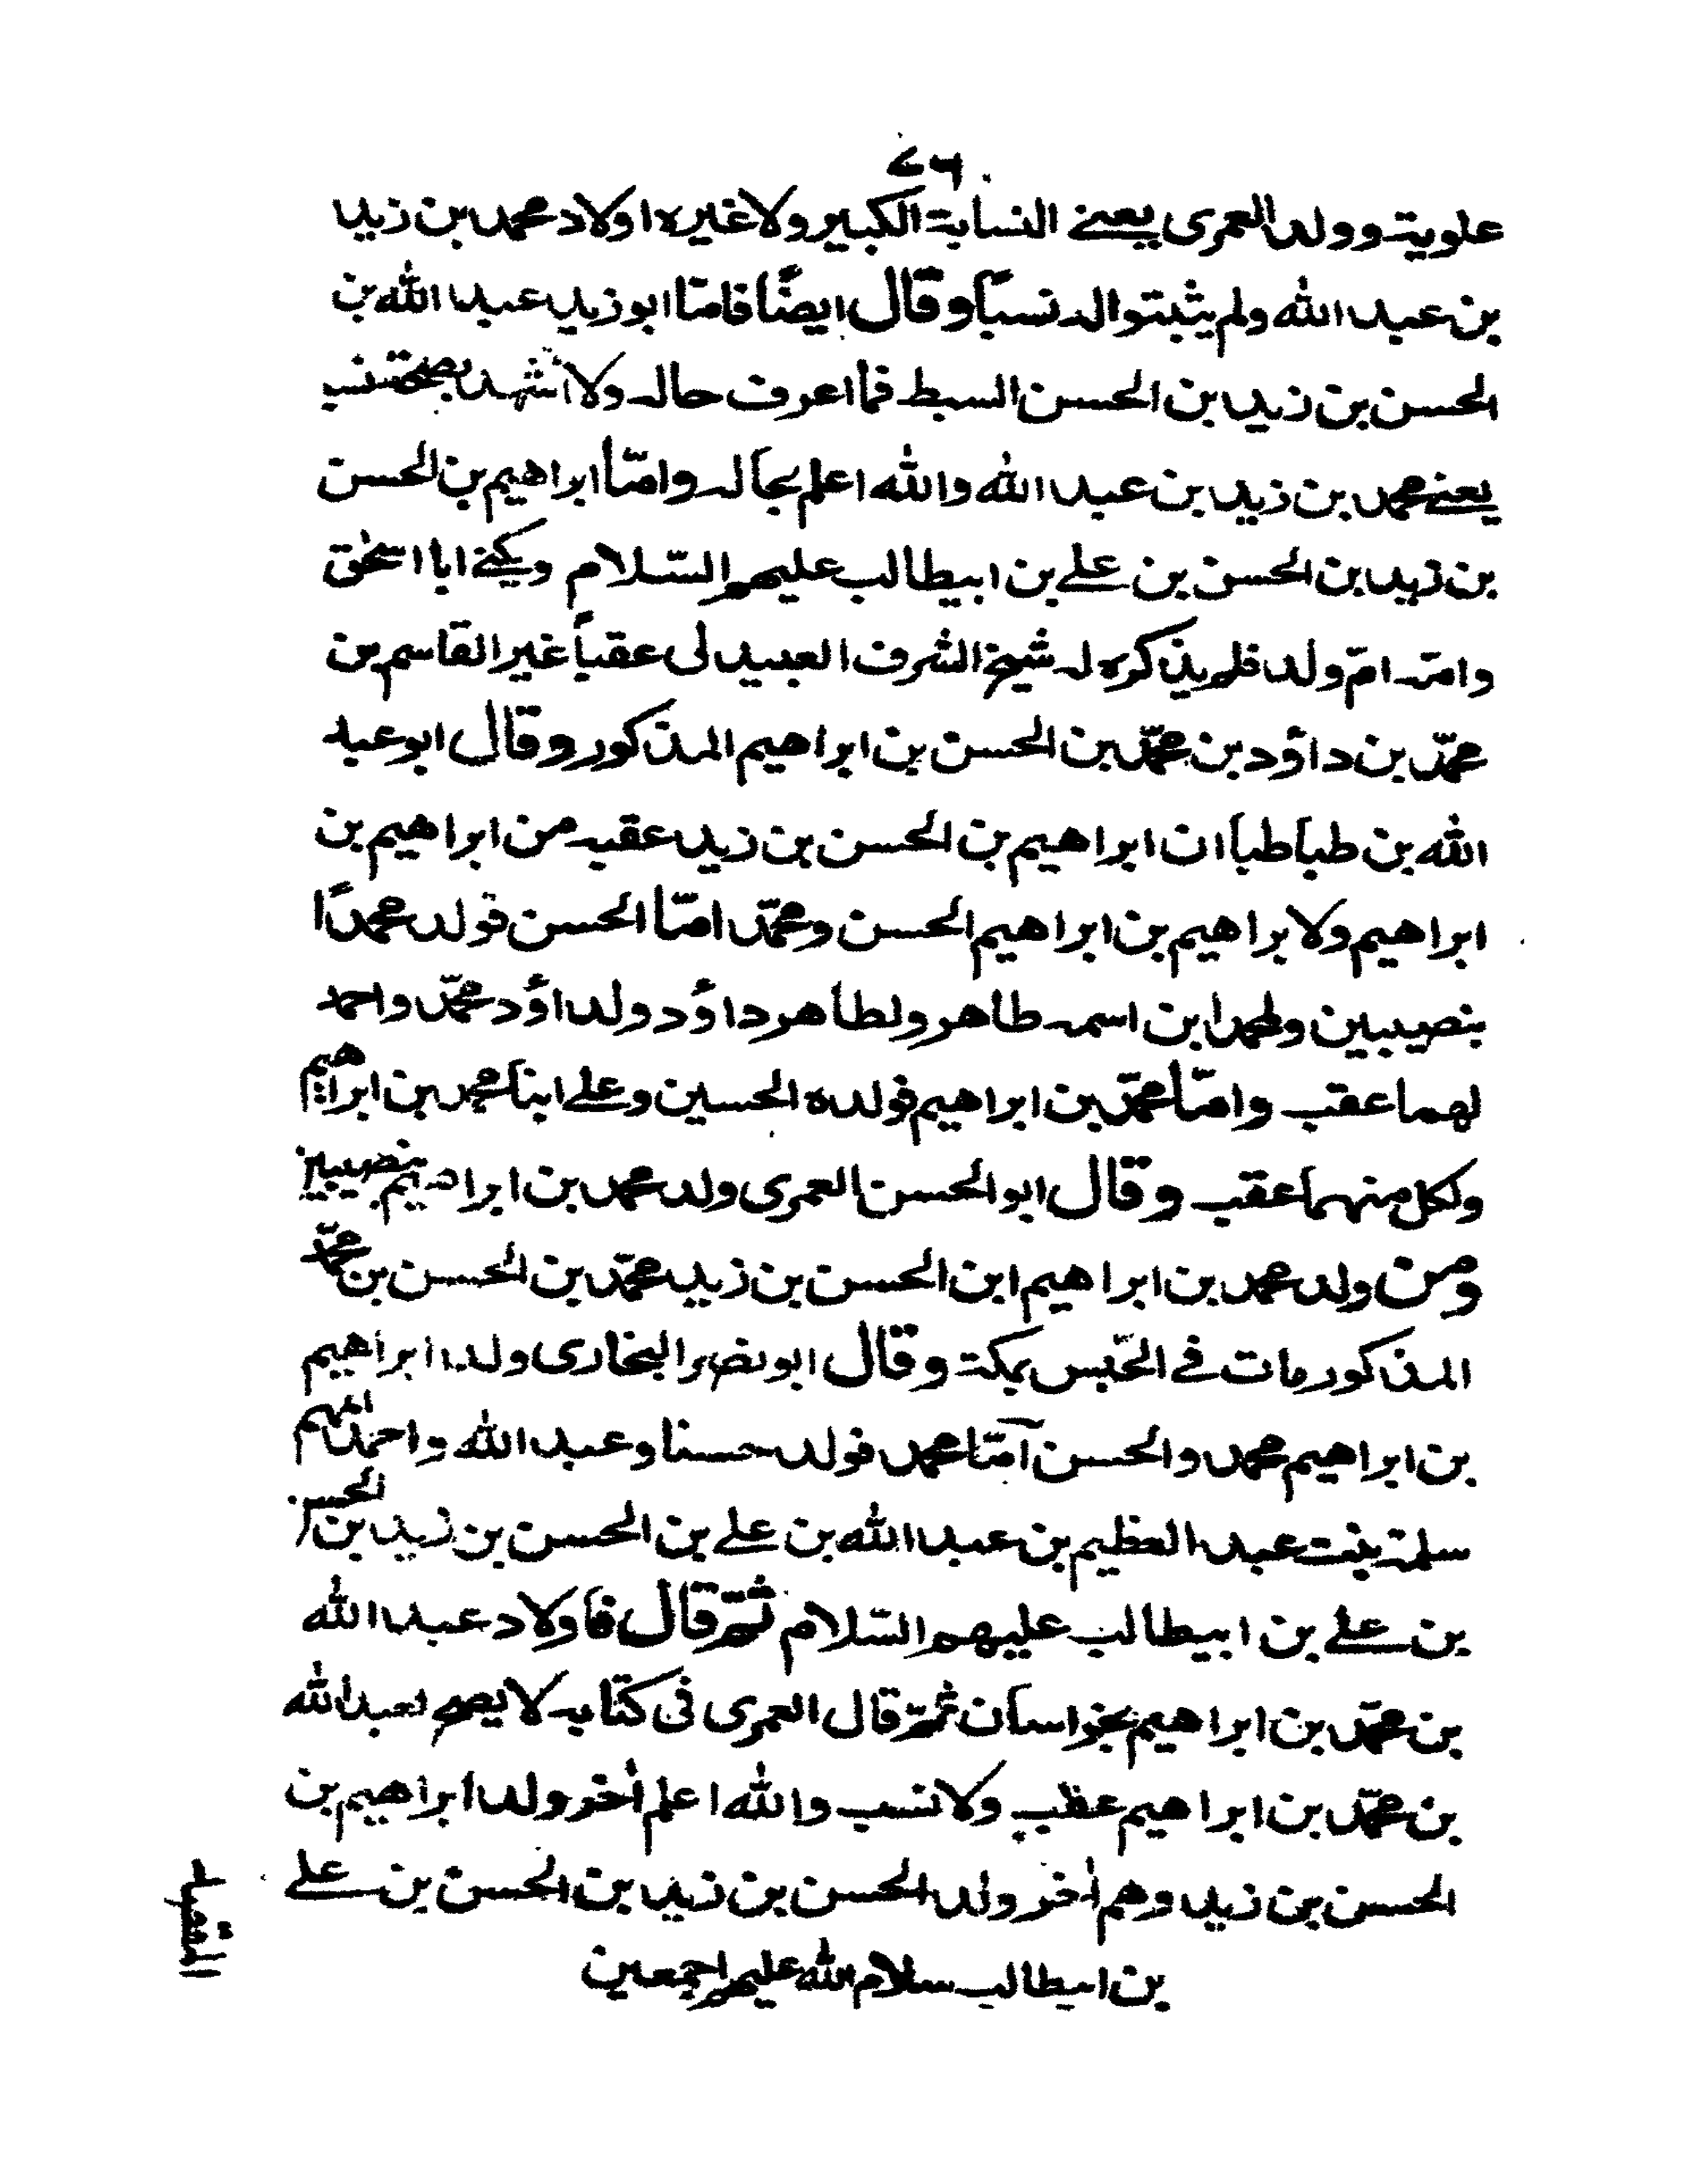 ٧٦
علوية وولد العمرى يعنے النسابة الكبير ولا غيره اولاد محمد بن زيد
بن عبد الله ولم يثبتوا له نسبًا وقال ايضًا فامّا ابو زيد عبد الله بن
الحسن بن زيد بن الحسن السبط فما اعرف حاله ولا اشهد بصحة نسب
يعنے محمد بن زيد بن عبد الله والله اعلم بحاله وامّا ابراهيم بن الحسن
بن زيد بن الحسن بن علے بن ابيطالب عليهم السّلام ويكنے ابا اسحٰق
وامّه امّ ولد فلم يذكره له شيخ الشرف العبيدلى عقباً غير القاسم بن
محمّد بن داؤد بن محمّد بن الحسن بن ابراهيم المذكور وقال ابو عبد
الله بن طباطبا ان ابراهيم بن الحسن بن زيد عقبه من ابراهيم بن
ابراهيم ولابراهيم بن ابراهيم الحسن ومحمّد امّا الحسن فولد محمدًا
بنصيبين ولمحمد ابن اسمه طاهر ولطاهر داؤد ولداؤد محمّد واحمد
لهما عقب وامّا محمّد بن ابراهيم فولده الحسين وعلے ابنا محمد بن ابراهيم
ولكل منهما عقب وقال ابو الحسن العمرى ولد محمد بن ابراهيم بنصيبين
ومن ولد محمد بن ابراهيم ابن الحسن بن زيد محمّد بن الحسن بن محمّد
المذكور مات فے الحبس بمكة وقال ابو نصر البخارى ولد ابراهيم
بن ابراهيم محمد والحسن امّا محمد فولد حسنا وعبد الله واحمد امّهم
سلمة بنت عبد العظيم بن عبد الله بن علے بن الحسن بن زيد بن الحسن
بن علے بن ابيطالب عليهم السّلام ثمّ قال فاولاد عبد الله
بن محمّد بن ابراهيم بخراسان ثمّ قال العمرى فى كتابه لا يصح لعبد الله
بن محمّد بن ابراهيم عقب ولا نسب والله اعلم اٰخر ولد ابراهيم بن
الحسن بن زيد وهم اٰخر ولد الحسن بن زيد بن الحسن بن علے
بن ابيطالب سلام الله عليهم اجمعين